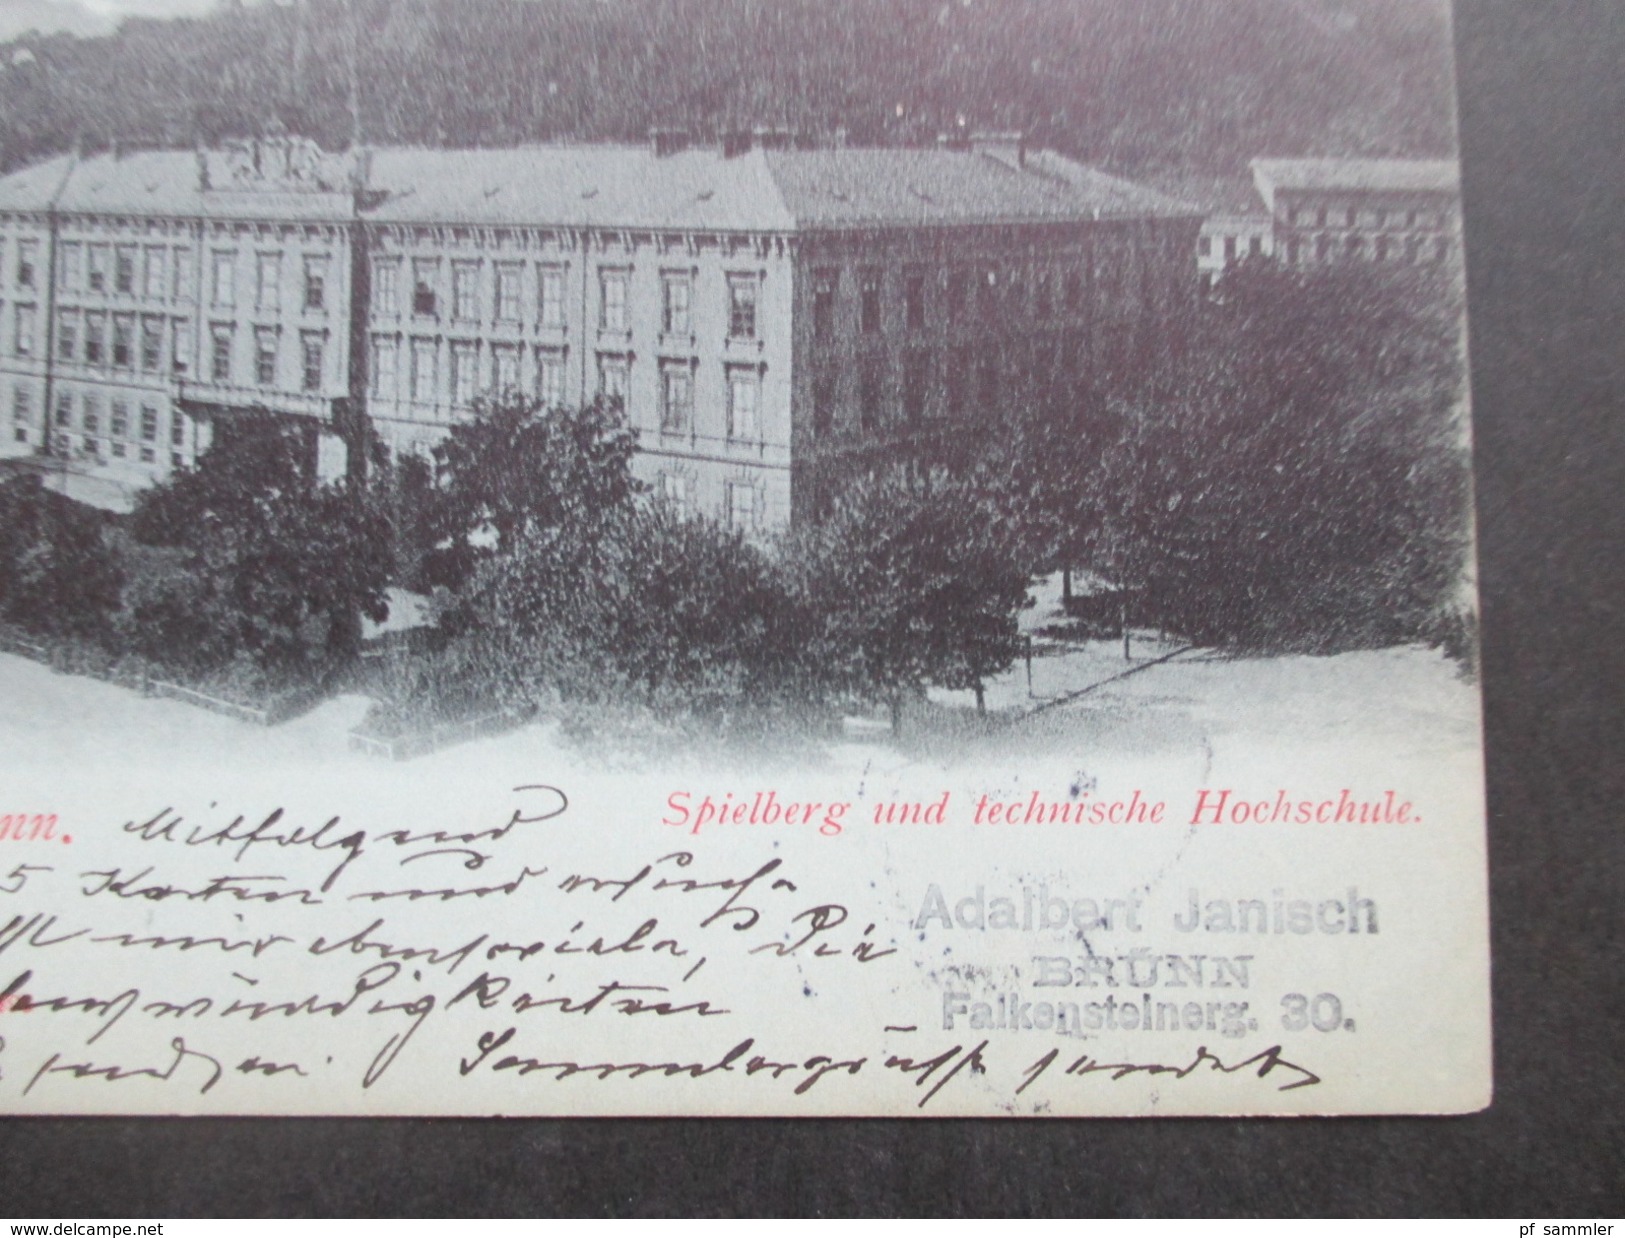 Spielberg und technische Hochschule.
nn. Mitfolgend
5 Karten und ersuche
mir ebensoviele, Die
Sehenswürdigkeiten
senden. Sammlergruß sendet
Adalbert Janisch
BRÜNN
Falkensteinerg. 30.
www.delcampe.net
pf_sammler